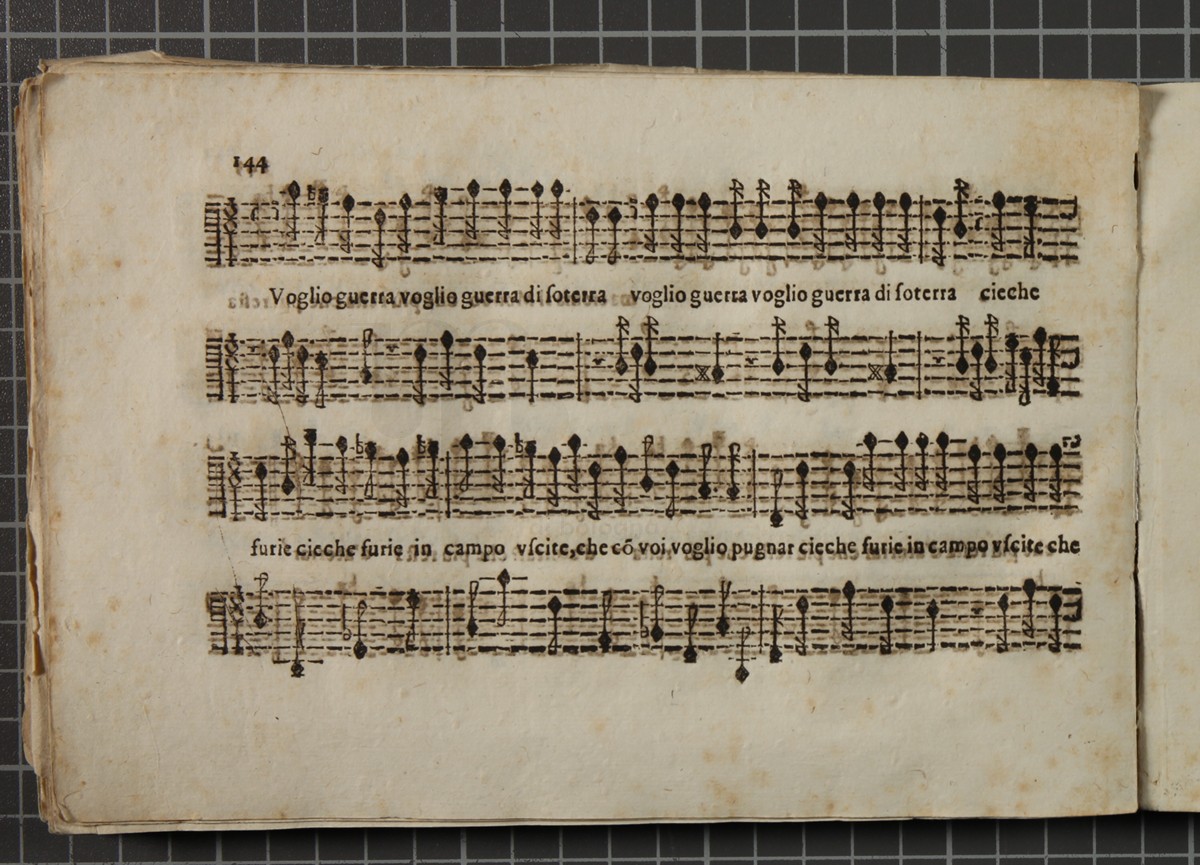 144
Voglio guerra voglio guerra di ſoterra voglio guerra voglio guerra di ſoterra cieche
furie cieche furie in campo vſcite,che cō voi voglio pugnar cieche furie in campo vſcite che